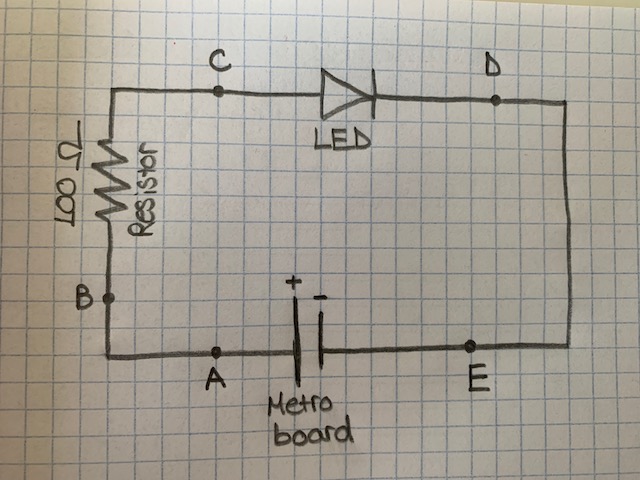 C
D
LED
100 Ω
Resistor
B
+
-
A
E
Metro
board